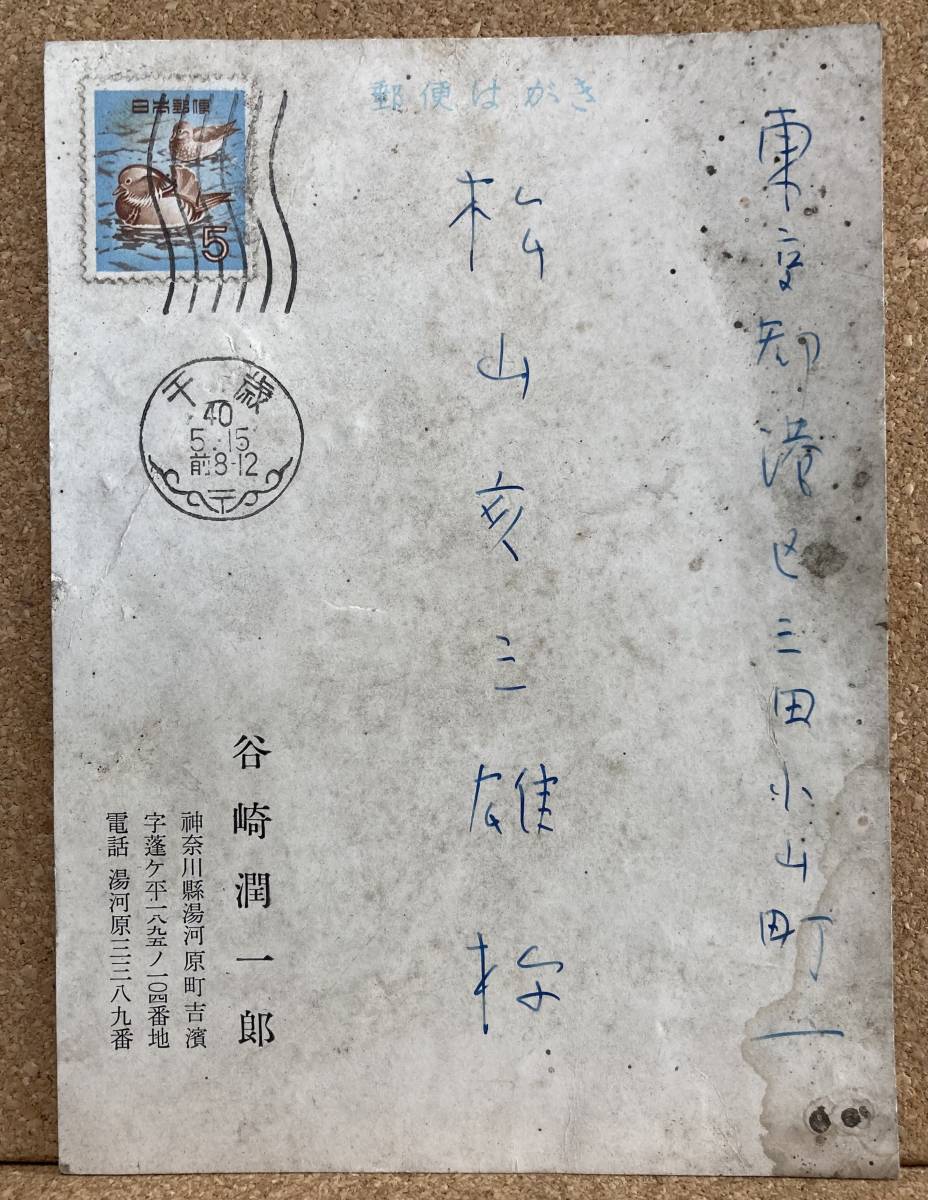 郵便はがき
東京都港区三田小山町一
松山亥三雄様
日本郵便
5
千歳
40
5.15
前8-12
谷崎潤一郎
神奈川縣湯河原町吉濱
字蓬ケ平一八九五ノ一〇四番地
電話 湯河原三三八九番